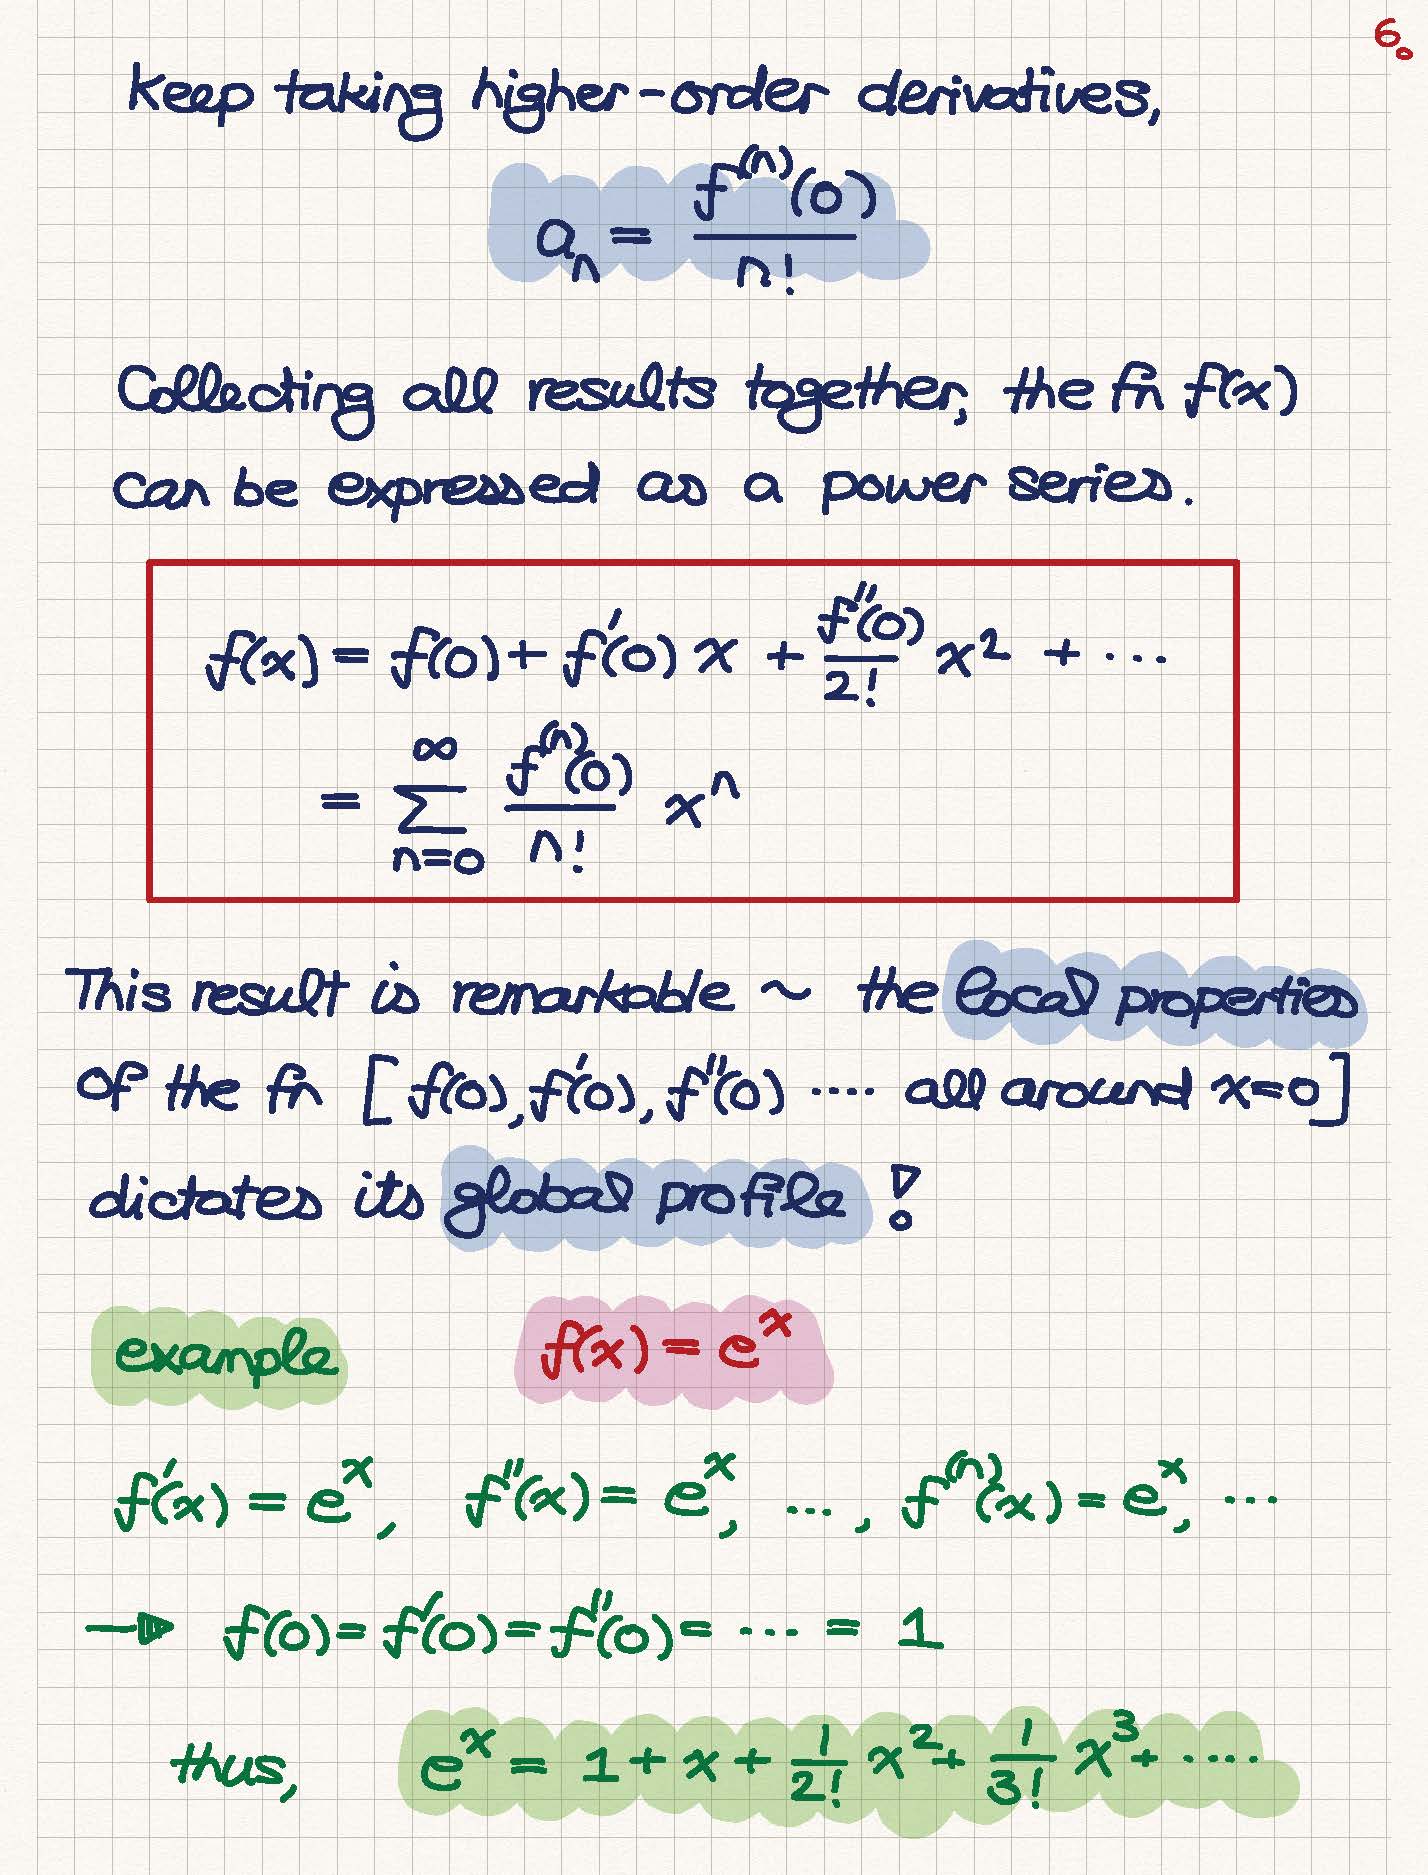 6.
Keep taking higher-order derivatives,
aₙ = f⁽ⁿ⁾(0) / n!
Collecting all results together, the fn f(x)
can be expressed as a power series.
f(x) = f(0) + f′(0) x + f″(0)/2! x² + ···
= ∑_{n=0}^{∞} f⁽ⁿ⁾(0)/n! xⁿ
This result is remarkable ~ the local properties
of the fn [f(0), f′(0), f″(0) ···· all around x=0]
dictates its global profile !
example f(x) = eˣ
f′(x) = eˣ, f″(x) = eˣ, ···, f⁽ⁿ⁾(x) = eˣ, ···
→ f(0) = f′(0) = f″(0) = ···· = 1
thus, eˣ = 1 + x + 1/2! x² + 1/3! x³ + ····